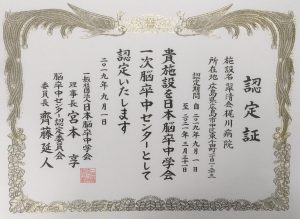 認定証
施設名 翠清会梶川病院
所在地 広島県広島市中区東千田町一丁目一-二三
認定期間 自 二〇一九年 九月 一日
至 二〇二一年 三月三十一日
貴施設を日本脳卒中学会
一次脳卒中センターとして
認定いたします
二〇一九年 九月 一日
一般社団法人 日本脳卒中学会
理事長 宮本 享
脳卒中センター認定委員会
委員長 齊藤延人